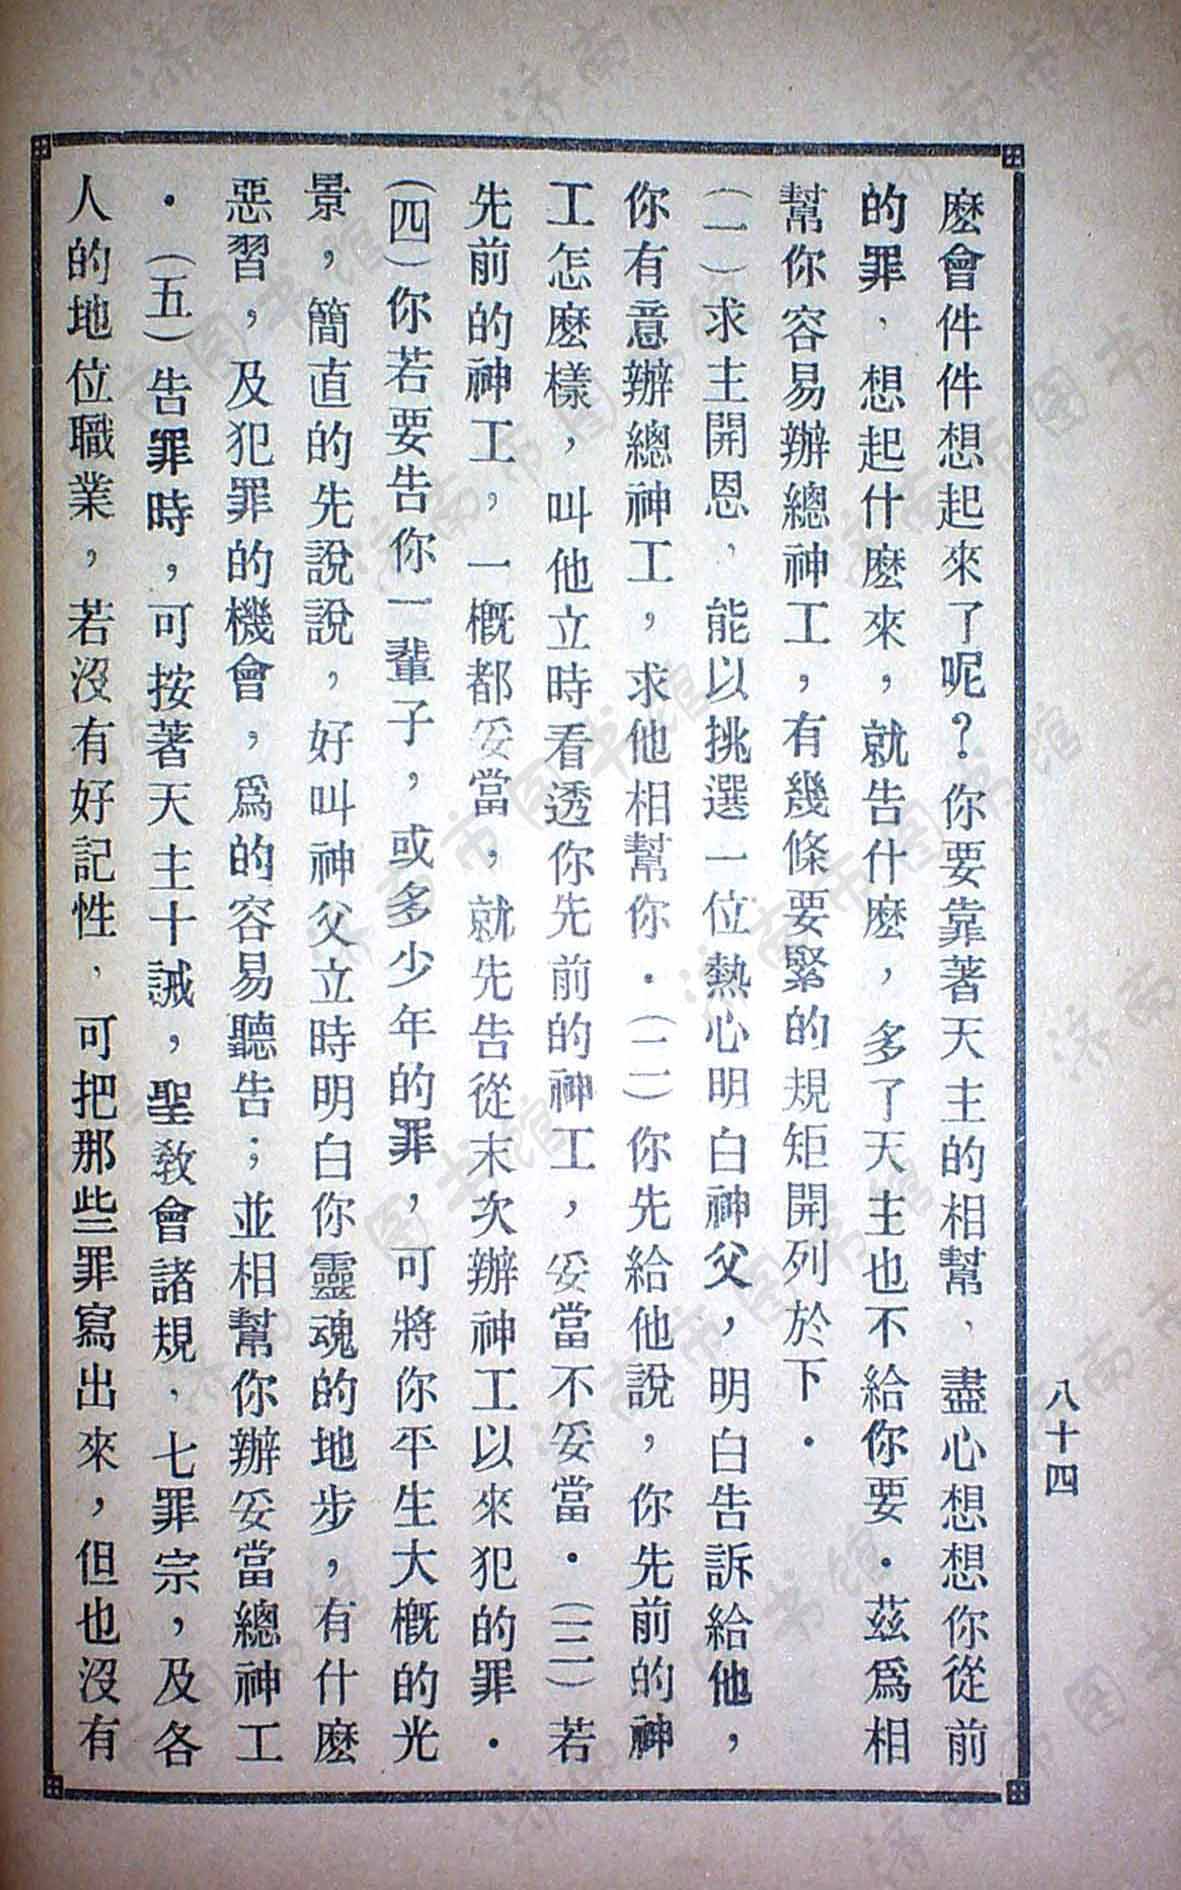 麽會件件想起來了呢？你要靠著天主的相幫，盡心想想你從前
的罪，想起什麽來，就告什麽，多了天主也不給你要．茲爲相
幫你容易辦總神工，有幾條要緊的規矩開列於下．
(一)求主開恩，能以挑選一位熱心明白神父，明白告訴給他，
你有意辦總神工，求他相幫你．(二)你先給他說，你先前的神
工怎麽樣，叫他立時看透你先前的神工，妥當不妥當．(三)若
先前的神工，一槪都妥當，就先告從末次辦神工以來犯的罪．
(四)你若要告你一輩子，或多少年的罪，可將你平生大槪的光
景，簡直的先說說，好叫神父立時明白你靈魂的地步，有什麽
惡習，及犯罪的機會，爲的容易聽告；並相幫你辦妥當總神工
．(五)告罪時，可按著天主十誡，聖敎會諸規，七罪宗，及各
人的地位職業，若沒有好記性，可把那些罪寫出來，但也沒有
八十四
济南市图书馆